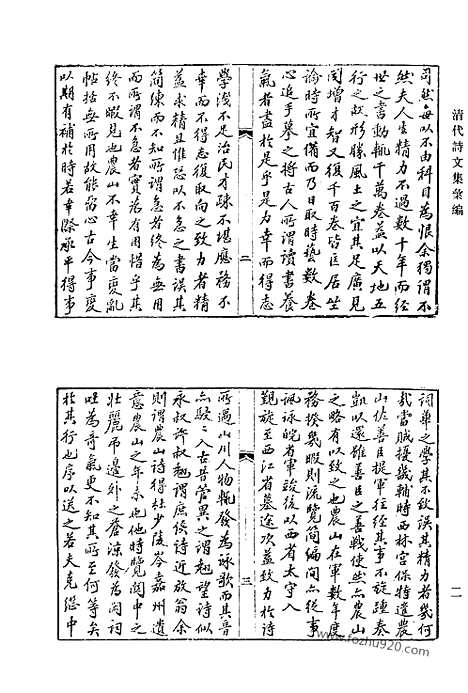 清代詩文集彙編
司然每以不由科目為恨余獨謂不
然夫人生精力不過數十年而經
世之書動輒千萬卷益以天地五
行之妖形勝風土之宜其足廣見
聞增才智又復千百卷皆匡居坐
論時所宜備而乃日取時藝數卷
心追手摹之將古人所謂讀書養
氣者盡於是乎是乃幸而得志
二
學淺不足治民才疎不堪應務不
幸而不得志復取向之致力者精
益求精且惟恐以不急之書誤其
簡練而不知所謂急者終為無用
而所謂不急者實為有用惜乎其
終不暇見也農山不幸生當變亂
帖括每所用故能留心古今事變
以期有補於時若幸際承平得事
詞華之學其不致誤其精力者幾何
哉當賊擾畿輔時西林宮保特遣農
山佐善臣提軍往經其事不旋踵奏
凱以還雖善臣之善戰使然亦農山
之略有以致之也農山在軍數年度
務揆幾暇則流覽簡編間亦從事
諷詠皖省軍竣後以西省太守入
覲旋至西江省墓途次益致力於詩
三
所過山川人物輒發為詠歌而其音
亦駸駸入古昔管異之謂魁望詩似
永叔許叔翹謂庶侯詩近放翁余
則謂農山詩得杜少陵岑嘉州遺
意農山之年未艾他時覽關中之
壯麗弔邊外之蒼涼發為閎詞
吐為奇氣更不知其所至何等矣
於其行也序以送之若夫克繼中
一一
www.foxhu920.com